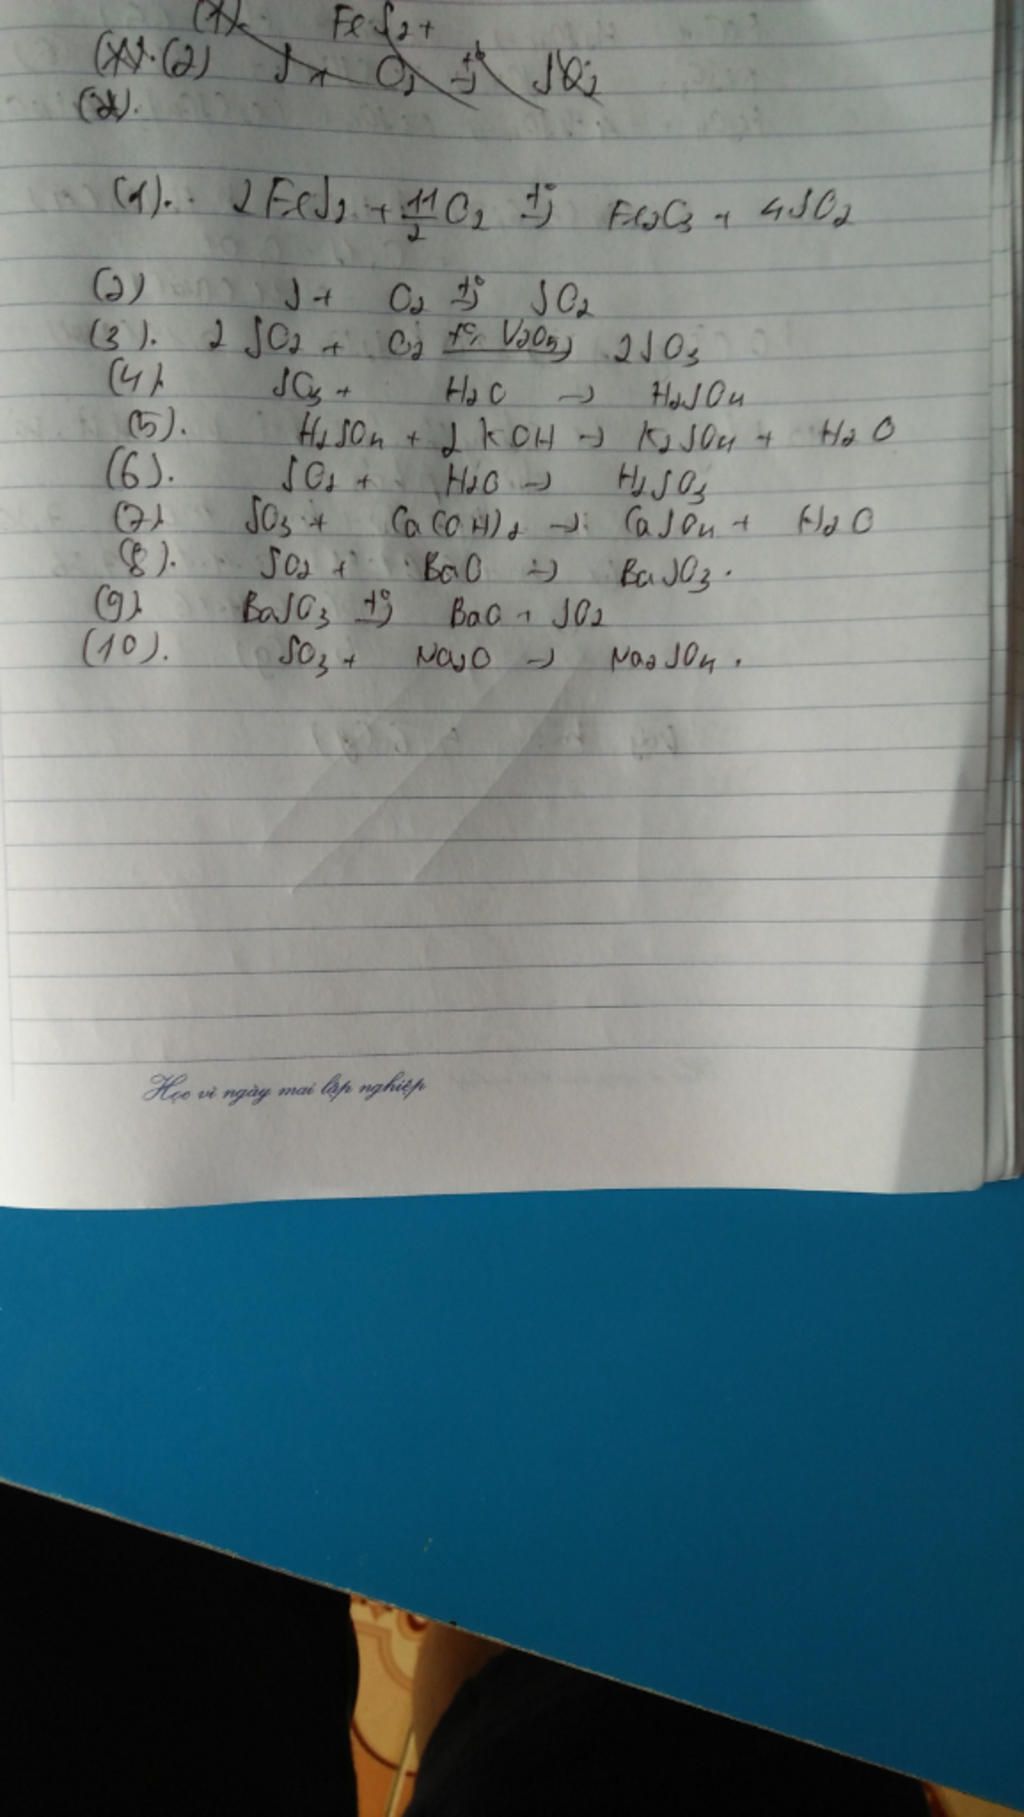 (1). FeS2+
(1). (2) S + O2 t°→ SO2
(2).
(1). 2FeS2 + 11/2 O2 t°→ Fe2O3 + 4SO2
(2) S + O2 t°→ SO2
(3). 2SO2 + O2 t°, V2O5→ 2SO3
(4) SO3 + H2O → H2SO4
(5). H2SO4 + 2KOH → K2SO4 + H2O
(6). SO2 + H2O → H2SO3
(7) SO3 + Ca(OH)2 → CaSO4 + H2O
(8). SO2 + BaO → BaSO3.
(9) BaSO3 t°→ BaO + SO2
(10). SO3 + Na2O → Na2SO4.
Học vì ngày mai lập nghiệp